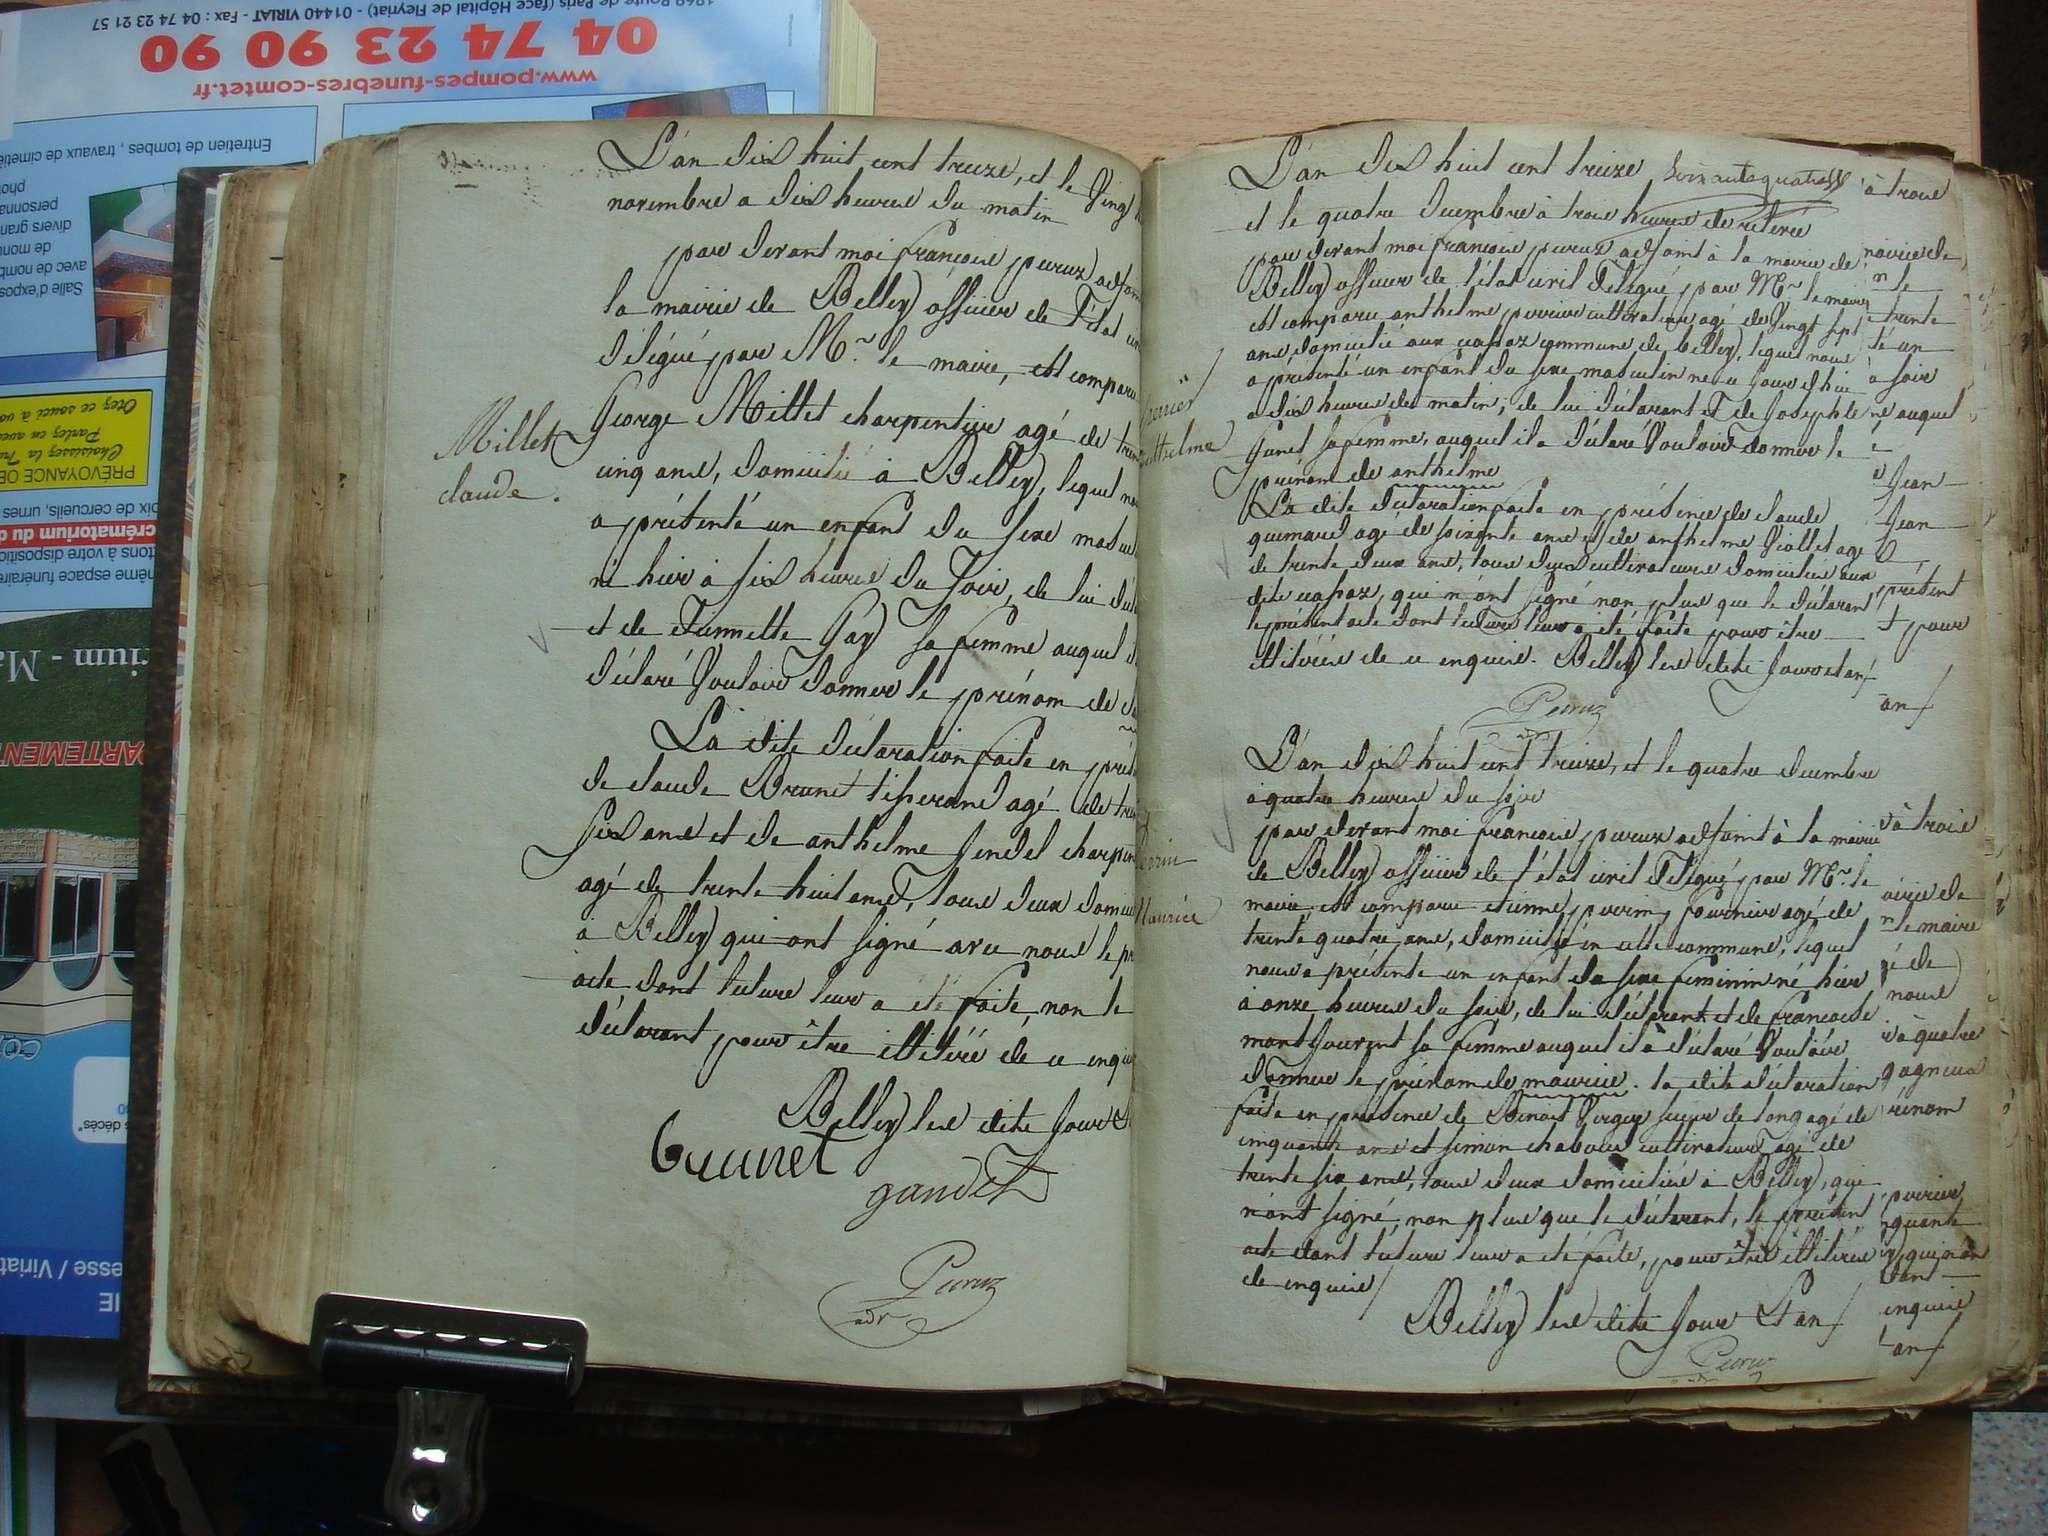 1868 Route de Paris (face Hôpital de Fleyriat) - 01440 VIRIAT - Fax : 04 74 23 21 57
04 74 23 90 90
www.pompes-funebres-comtet.fr
Entretien de tombes, travaux de
Salle d'expos
avec de nomb
de monu
divers gran
personna
Otez ce souci à vo
Parlez en avec
Choisissez la
PRÉVOYANCE OB
oix de cercueils, urnes
crématorium du d
à votre disposition
ême espace funéraire
rium - Ma
PARTEMENT
décès"
esse / Viriat
L'an dix huit cent treize, et le Vingt
novembre a dix heures du matin
par devant moi françois peruz adjoin
la mairie de Belley officier de l'état civ
délégué par Mr. le maire, est comparu
George Millet charpentier agé de tren
cinq ans, domicilié à Belley, lequel no
a présenté un enfant du sexe mascul
né hier à six heures du soir, de lui décl
et de Etiennette Gay sa femme auquel il
déclaré Vouloir donner le prénom de
Millet
claude.
La dite déclaration faite en prés
de claude Brunet tisserand agé de tren
six ans et de anthelme charpen
agé de trente huit ans, tous deux domici
à Belley qui ont signé avec nous le pr
acte dont lecture leur a été faite, non le
déclarant pour être illitéré de ce enquis
Belley les dits jour &
Brunet
Peruz
adt
L'an dix huit cent treize
soixante quatre
et le quatre decembre à trois heures de relevée
par devant moi françois peruz adjoint à la mairie de
Belley officier de l'état civil délégué par Mr. le maire
est comparu anthelme perrier cultivateur agé de Vingt sept
ans domicilié aux commune de belley, lequel nous
a présenté un enfant du sexe masculin né ce jour d'hui
a dix heures du matin, de lui déclarant et de Josephte
sa femme, auquel il a déclaré Vouloir donner le
prénom de anthelme
perrier
anthelme
La dite déclaration faite en présence de claude
agé de soixante ans et de anthelme Viollet agé
de trente deux ans, tous deux cultivateurs domiciliés aux
dits qui n'ont signé non plus que le déclarant
le présent acte dont lecture leur a été faite pour être
illitérés de ce enquis. Belley les dits jour et an
Peruz
L'an dix huit cent treize, et le quatre decembre
à quatre heures du soir
par devant moi françois peruz adjoint à la mairie
de Belley officier de l'état civil délégué par Mr. le
maire est comparu etienne perrin agé de
trente quatre ans, domicilié en cette commune, lequel
nous a présenté un enfant du sexe feminin né hier
à onze heures du soir, de lui déclarant et de françoise
sa femme auquel il a déclaré Vouloir
donner le prénom de maurice. la dite déclaration
perrin
Maurice
faite en présence de Benoit scieur de long agé de
cinquante ans et simon cultivateur agé de
trente six ans, tous deux domiciliés à Belley, qui
n'ont signé, non plus que le déclarant, le présent
acte dont lecture leur a été faite, pour être illitérés
de enquis
Belley les dits jour & an
Peruz
à trois
mairie de
n le
trente
à soir
né auquel
Jean
Jean
présent
t pour
an
à trois
airie de
n le maire
é de
nous
à quatre
rénom
perrier
nquante
enquis
an